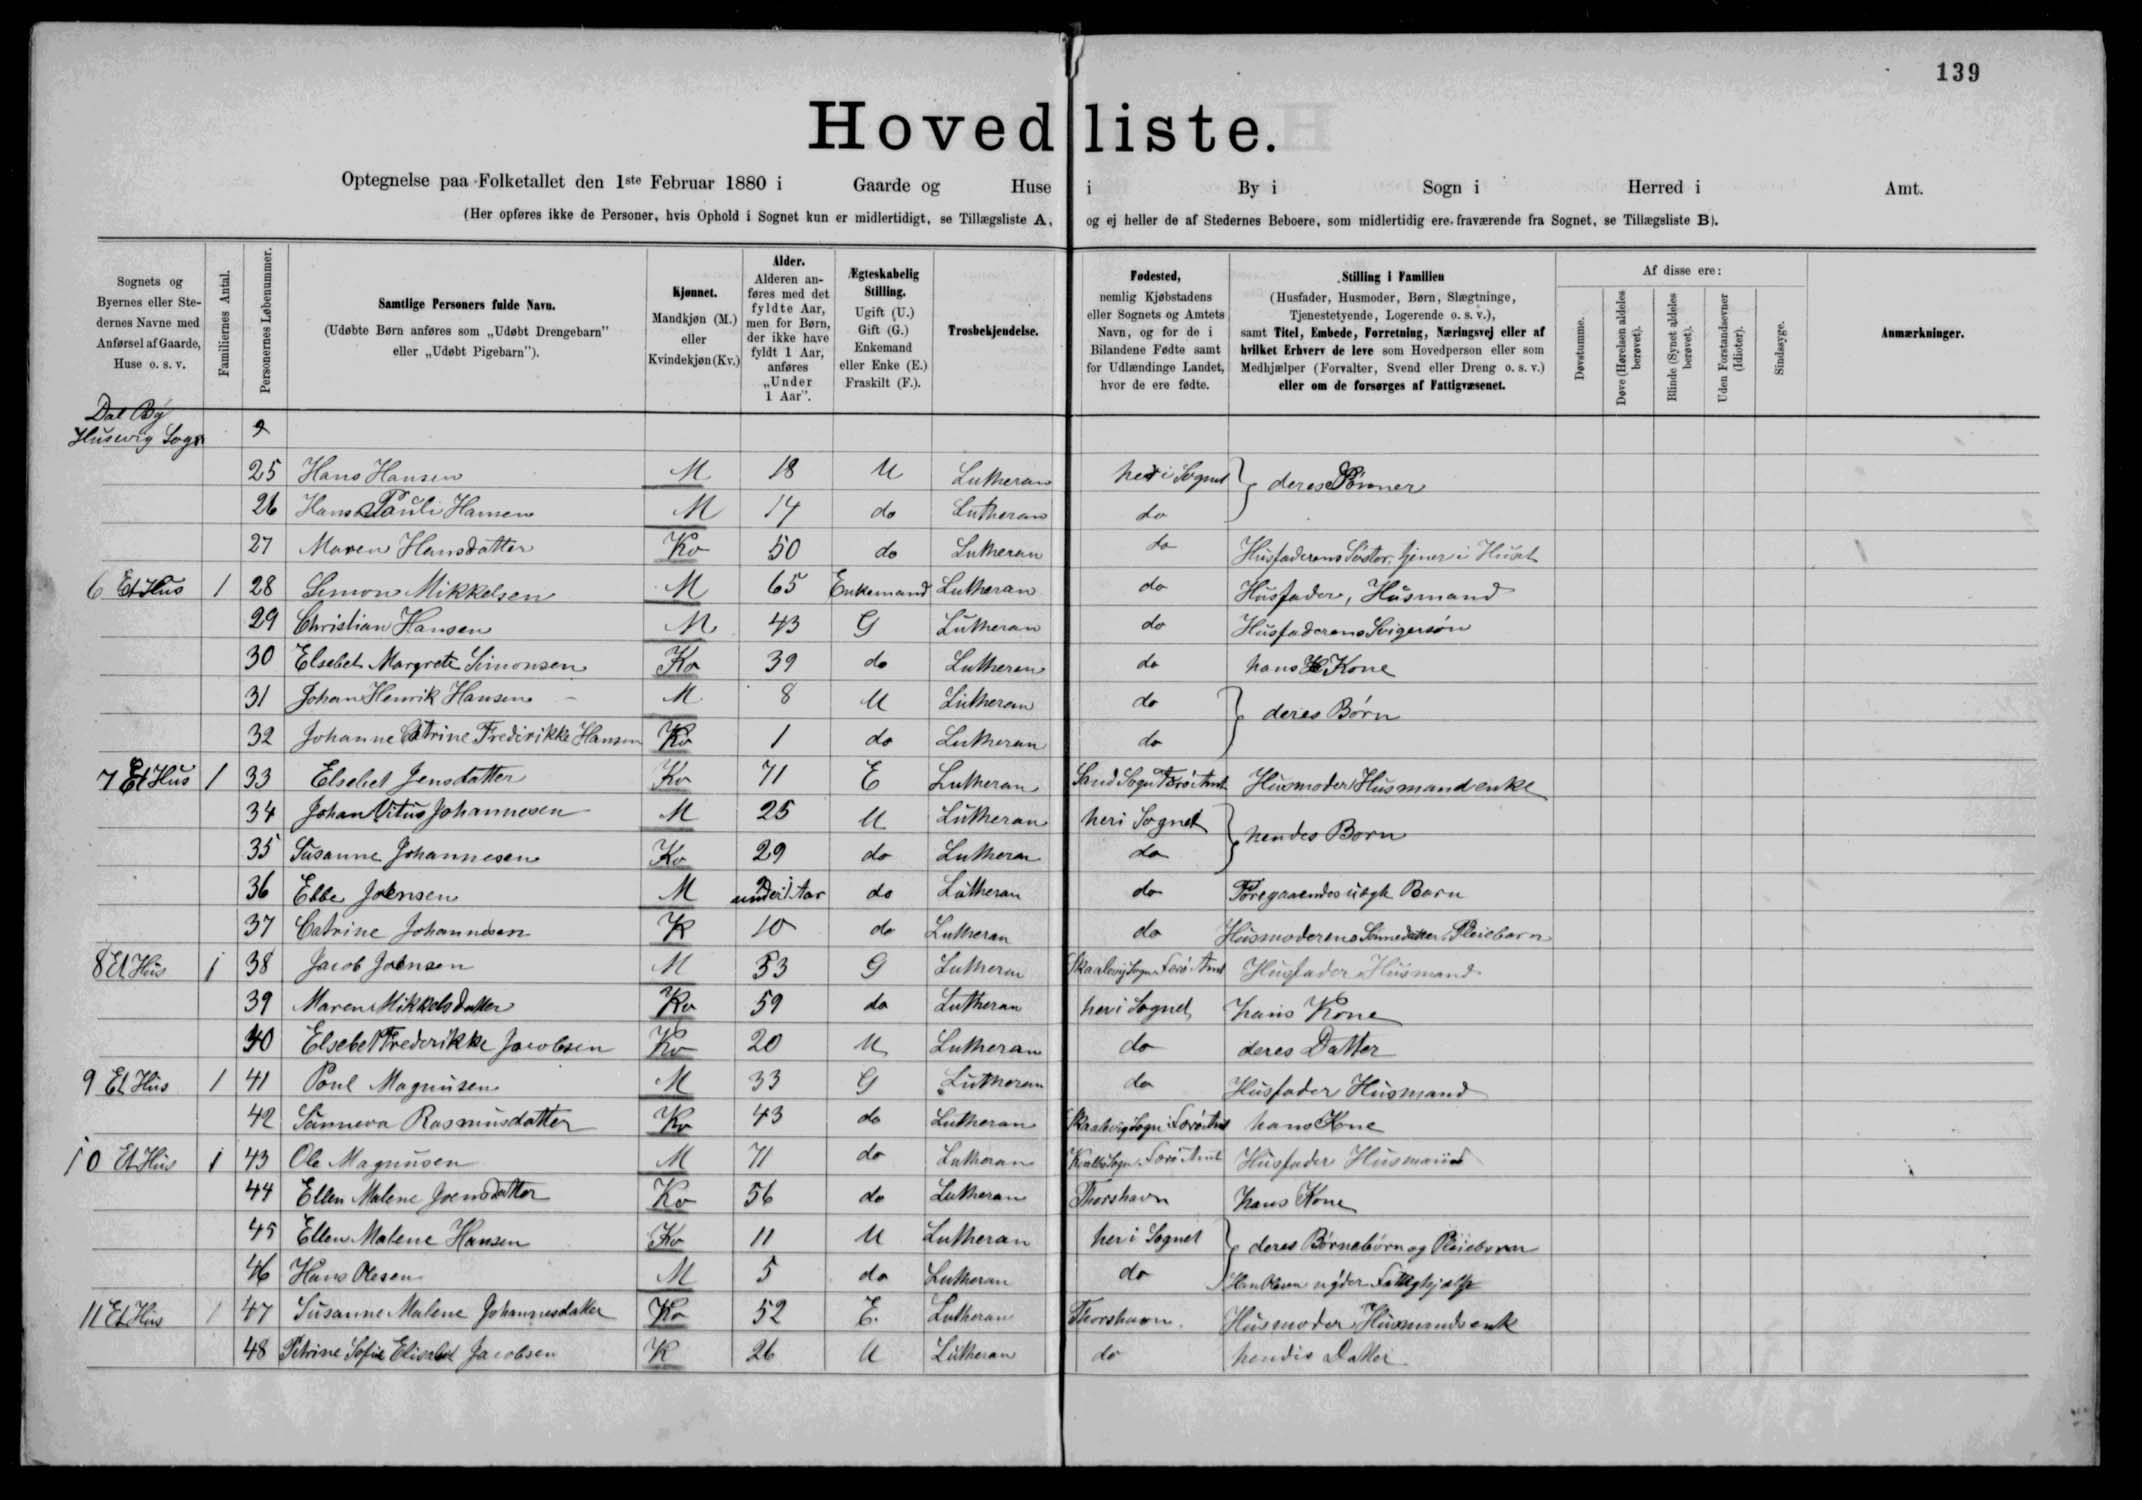 139
Hovedliste.
Optegnelse paa Folketallet den 1ste Februar 1880 i Gaarde og Huse i By i Sogn i Herred i Amt.
(Her opføres ikke de Personer, hvis Ophold i Sognet kun er midlertidigt, se Tillægsliste A, og ej heller de af Stedernes Beboere, som midlertidig ere fraværende fra Sognet, se Tillægsliste B).
Sognets og Byernes eller Stedernes Navne med Anførsel af Gaarde, Huse o. s. v.
Familiernes Antal.
Personernes Løbenummer.
Samtlige Personers fulde Navn.
(Udøbte Børn anføres som „Udøbt Drengebarn" eller „Udøbt Pigebarn").
Kjønnet.
Mandkjøn (M.) eller Kvindekjøn (Kv.)
Alder.
Alderen anføres med det fyldte Aar, men for Børn, der ikke have fyldt 1 Aar, anføres „Under 1 Aar".
Ægteskabelig Stilling.
Ugift (U.) Gift (G.) Enkemand eller Enke (E.) Fraskilt (F.).
Trosbekjendelse.
Fødested,
nemlig Kjøbstadens eller Sognets og Amtets Navn, og for de i Bilandene Fødte samt for Udlændinge Landet, hvor de ere fødte.
Stilling i Familien
(Husfader, Husmoder, Børn, Slægtninge, Tjenestetyende, Logerende o. s. v.),
samt Titel, Embede, Forretning, Næringsvej eller af hvilket Erhverv de leve som Hovedperson eller som Medhjælper (Forvalter, Svend eller Dreng o. s. v.) eller om de forsørges af Fattigvæsenet.
Af disse ere:
Døvstumme.
Døve (Hørelsen aldeles berøvet).
Blinde (Synet aldeles berøvet).
Uden Forstandsevner (Idioter).
Sindssyge.
Anmærkninger.
Dal By
Husevig Sogn
25 Hans Hansen M 18 U Lutheran her i Sognet } deres Sönner
26 Hans Pauli Hansen M 14 do Lutheran do
27 Maren Hansdatter Kv 50 do Lutheran do Husfaderens Söster, tjener i Huset
6 Et Hus 1 28 Simon Mikkelsen M 65 Enkemand Lutheran do Husfader, Husmand
29 Christian Hansen M 43 G Lutheran do Husfaderens Svigersön
30 Elsebet Margrete Simonsen Kv 39 do Lutheran do hans Kone
31 Johan Henrik Hansen M 8 U Lutheran do } deres Börn
32 Johanne Catrine Frederikke Hansen Kv 1 do Lutheran do
7 Et Hus 1 33 Elsebet Jensdatter Kv 71 E Lutheran Sand Sogn Færö Amt Husmoder Husmandenke
34 Johan Vitus Johannesen M 25 U Lutheran her i Sognet } hendes Born
35 Susanne Johannesen Kv 29 do Lutheran do
36 Ebbe Joensen M under 1 Aar do Lutheran do Foregaaendes uægte Barn
37 Catrine Johannesen K 10 do Lutheran do Husmoderens Sönnedatter, Pleiebarn
8 Et Hus 1 38 Jacob Joensen M 53 G Lutheran Skaalevig Sogn Færö Amt Husfader Husmand
39 Maren Mikkelsdatter Kv 59 do Lutheran her i Sognet hans Kone
40 Elsebet Frederikke Jacobsen Kv 20 U Lutheran do deres Datter
9 Et Hus 1 41 Poul Magnusen M 33 G Lutheran do Husfader Husmand
42 Sunneva Rasmusdatter Kv 43 do Lutheran Skaalevig Sogn Færö Amt hans Kone
10 Et Hus 1 43 Ole Magnusen M 71 do Lutheran Sogn Færö Amt Husfader Husmand
44 Ellen Malene Joensdatter Kv 56 do Lutheran Thorshavn hans Kone
45 Ellen Malene Hansen Kv 11 U Lutheran her i Sognet } deres Börnebörn og Pleiebörn
46 Hans Olesen M 5 do Lutheran do Hans Olesen nyder Fattighjælp
11 Et Hus 1 47 Susanne Malene Johannesdatter Kv 52 E. Lutheran Thorshavn. Husmoder, Husmandsenk
48 Petrine Sofie Elisabet Jacobsen K 26 U Lutheran do hendes Datter